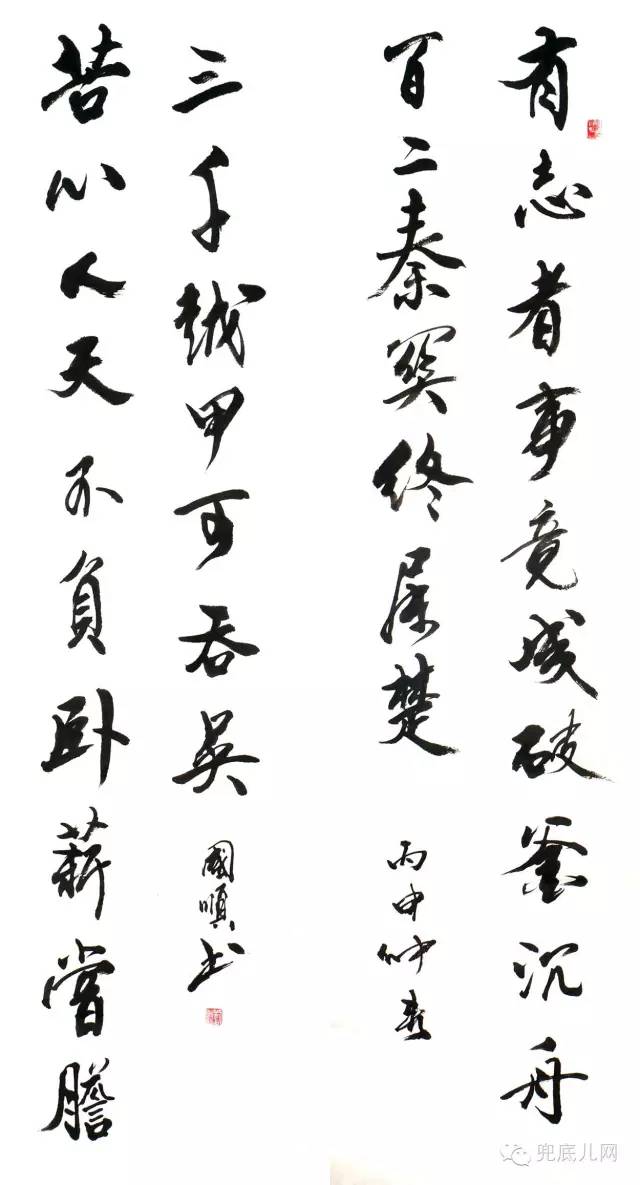 有志者事竟成破釜沉舟
百二秦関终属楚
丙申仲春
苦心人天不負卧薪嘗膽
三千越甲可吞吳
國順书
兜底儿网